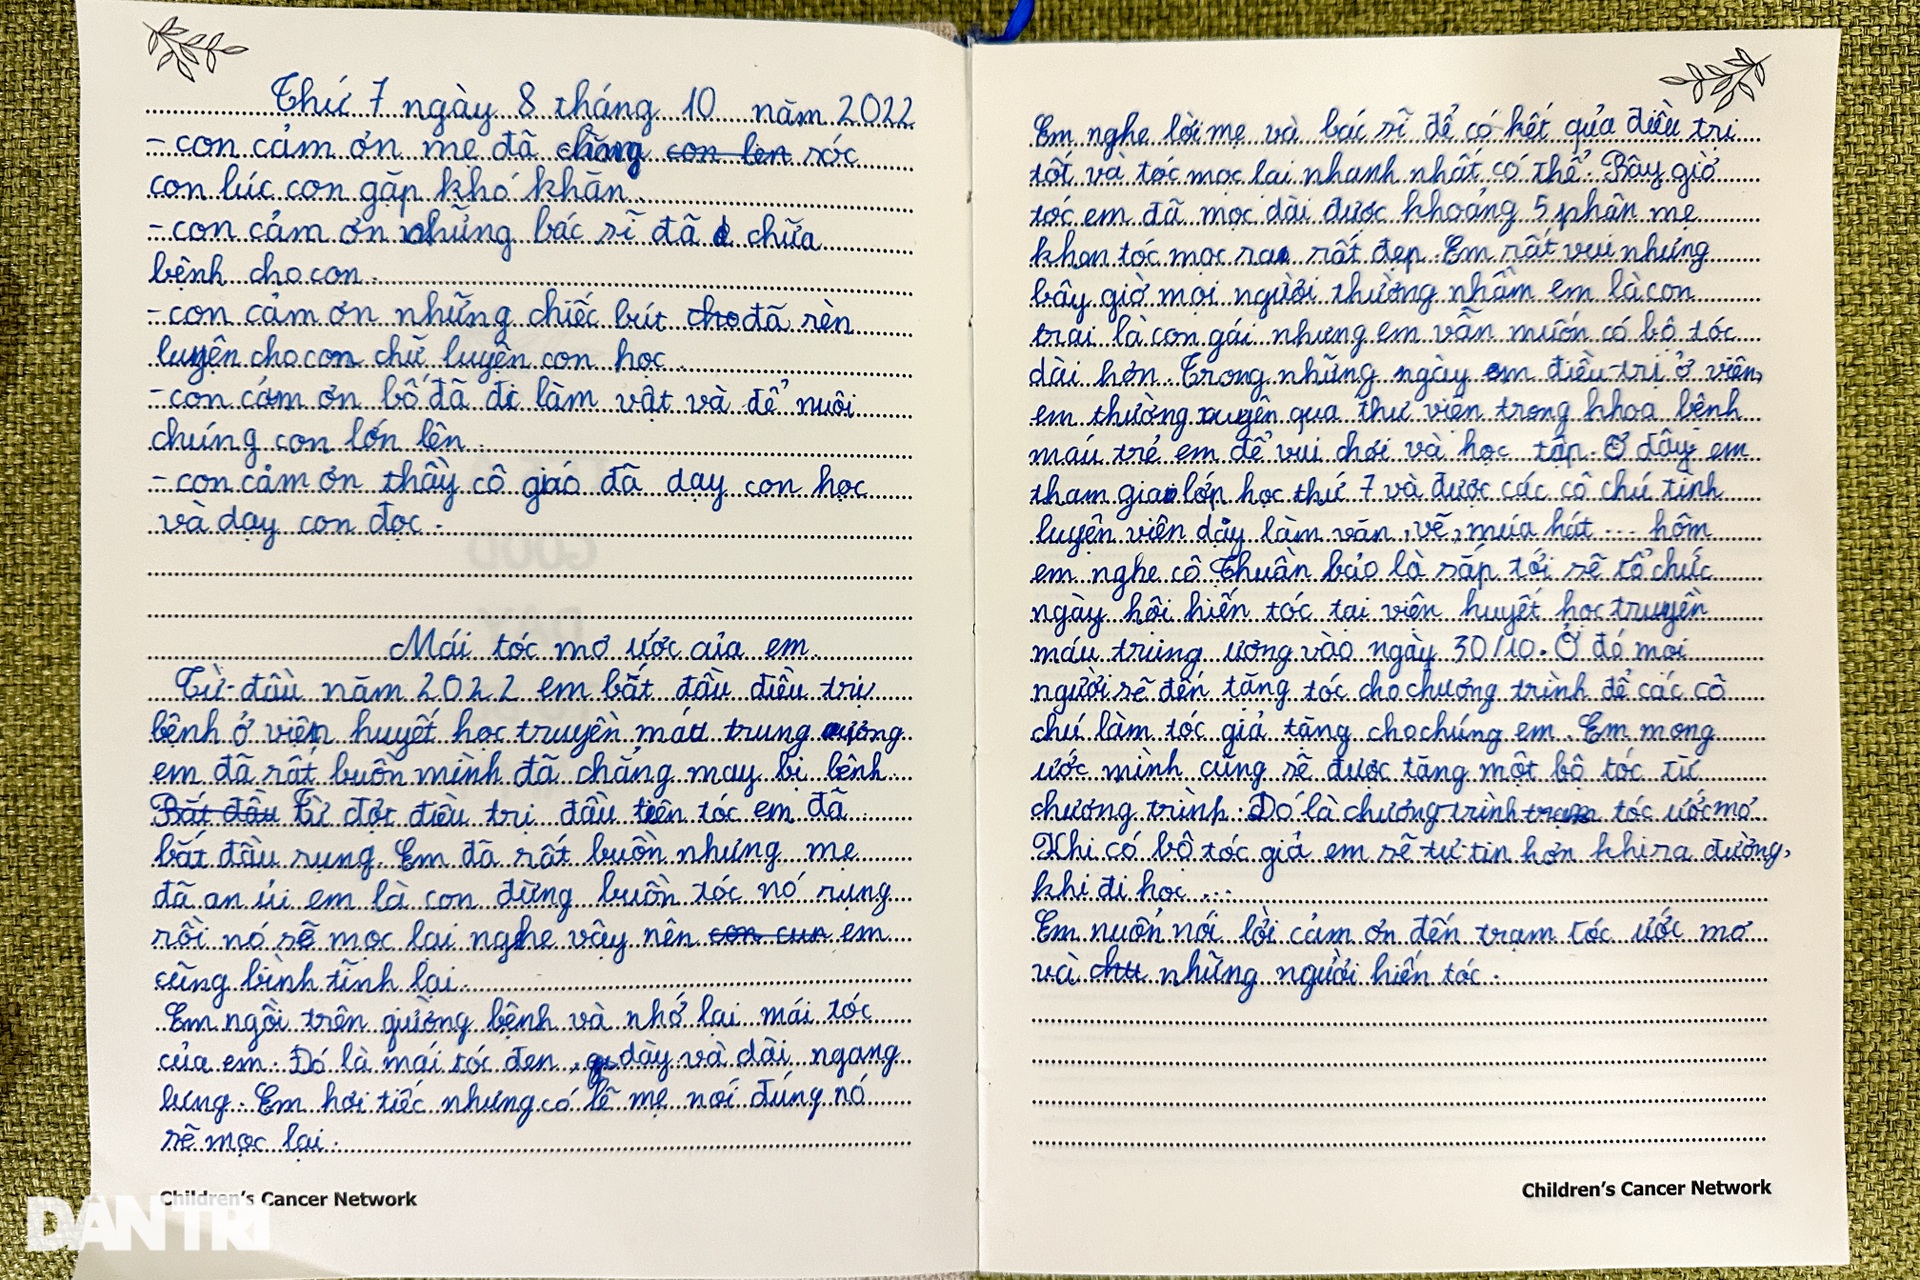 Thứ 7 ngày 8 tháng 10 năm 2022
- con cảm ơn mẹ đã chăng con lên sóc
con lúc con gặp khó khăn.
- con cảm ơn những bác sĩ đã chữa
bệnh cho con.
- con cảm ơn những chiếc bút cho đã rèn
luyện cho con chữ luyện con học.
- con cảm ơn bố đã đi làm vật và để nuôi
chúng con lớn lên.
- con cảm ơn thầy cô giáo đã dạy con học
và dạy con đọc.
Mái tóc mơ ước của em.
Từ đầu năm 2022 em bắt đầu điều trị
bệnh ở viện huyết học truyền máu trung ương
em đã rất buồn mình đã chẳng may bị bệnh.
Bắt đầu Từ đợt điều trị đầu tiên tóc em đã
bắt đầu rụng. Em đã rất buồn nhưng mẹ
đã an ủi em là con đừng buồn tóc nó rụng
rồi nó sẽ mọc lại nghe vậy nên con cun em
cũng bình tĩnh lại.
Em ngồi trên giường bệnh và nhớ lại mái tóc
của em. Đó là mái tóc đen, dày và dài ngang
lưng. Em hơi tiếc nhưng có lẽ mẹ nói đúng nó
sẽ mọc lại.
Children's Cancer Network
DANTRI
Em nghe lời mẹ và bác sĩ để có kết qủa điều trị
tốt và tóc mọc lại nhanh nhất có thể. Bây giờ
tóc em đã mọc dài được khoảng 5 phân mẹ
khen tóc mọc ra rất đẹp. Em rất vui nhưng
bây giờ mọi người thường nhầm em là con
trai là con gái nhưng em vẫn muốn có bộ tóc
dài hơn. Trong những ngày em điều trị ở viện,
em thường xuyên qua thư viện trong khoa bệnh
máu trẻ em để vui chơi và học tập. Ở đây em
tham gia lớp học thứ 7 và được các cô chú tình
luyện viên dạy làm văn, vẽ, múa hát... hôm
em nghe cô Thuần bảo là sắp tới sẽ tổ chức
ngày hội hiến tóc tại viện huyết học truyền
máu trung ương vào ngày 30/10. Ở đó mọi
người sẽ đến tặng tóc cho chương trình để các cô
chú làm tóc giả tặng cho chúng em. Em mong
ước mình cũng sẽ được tặng một bộ tóc từ
chương trình. Đó là chương trình trạm tóc ước mơ.
Khi có bộ tóc giả em sẽ tự tin hơn khi ra đường,
khi đi học...
Em muốn nói lời cảm ơn đến trạm tóc ước mơ
và chu những người hiến tóc.
Children's Cancer Network